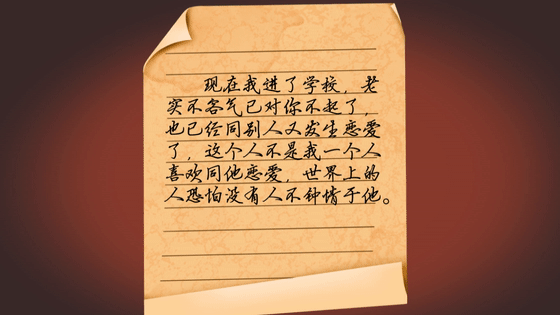 现在我进了学校，老
实不客气已对你不起了，
也已经同别人又发生恋爱
了，这个人不是我一个人
喜欢同他恋爱，世界上的
人恐怕没有人不钟情于他。